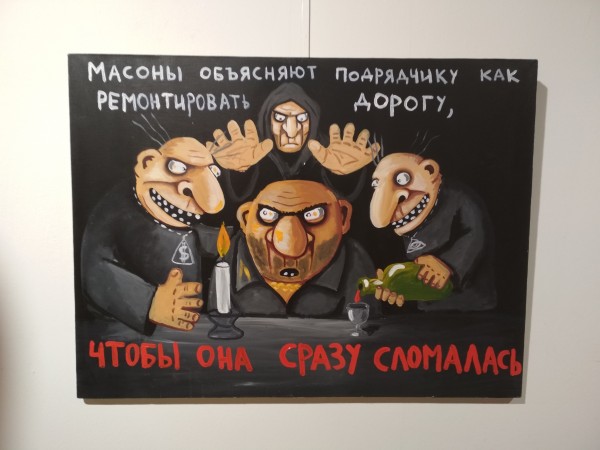 Масоны объясняют подрядчику как
ремонтировать дорогу,
$
чтобы она сразу сломалась